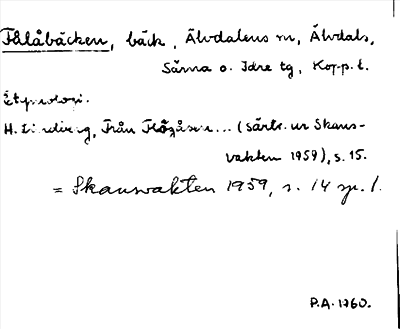 Fålåbäcken, bäck, Älvdalens m, Älvdals,
Särna o. Idre tg, Kopp. l.
Etymologi.
H. Lindberg, Från ... (särtr. ur Skans-
vakten 1959), s. 15.
= Skansvakten 1959, s. 14 sp. 1.
P.A. 1760.